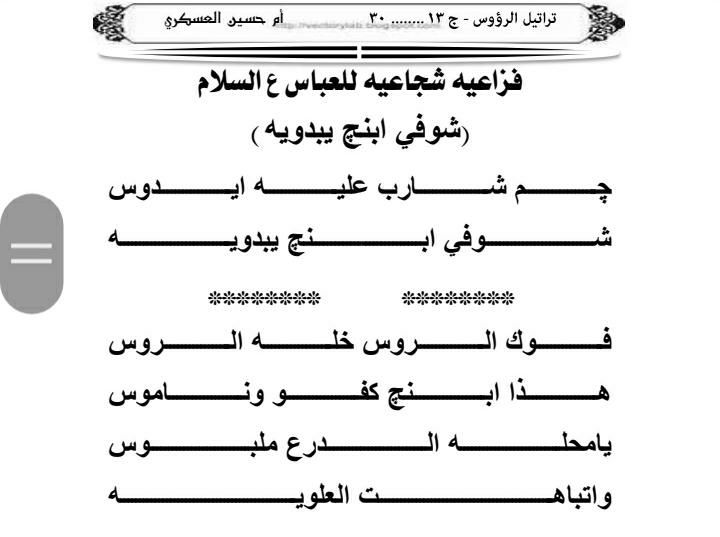 تراتيل الرؤوس - ج ١٣ ........ ٣٠ أم حسين العسكري
فزاعيه شجاعيه للعباس ع السلام
(شوفي ابنچ يبدويه)
چــم شــارب عليــه ايــدوس
شــوفي ابــنچ يبدويــه
******** ********
فــوك الــروس خلــه الــروس
هــذا ابــنچ كفــو ونــاموس
يامحلــه الــدرع ملبــوس
واتباهــت العلويــه